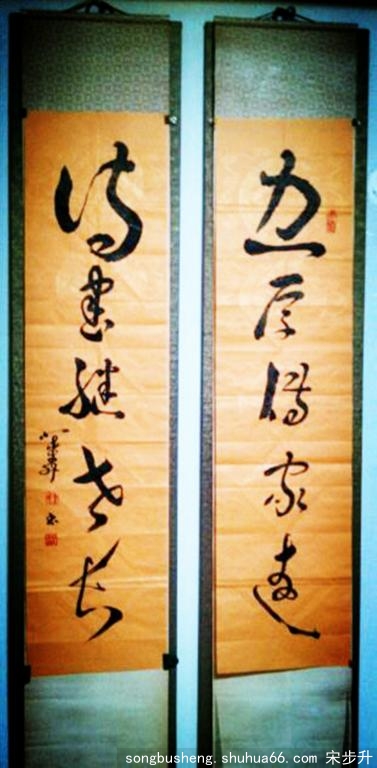 忠厚傳家遠
詩書繼世長
songbusheng.shuhua66.com 宋步升